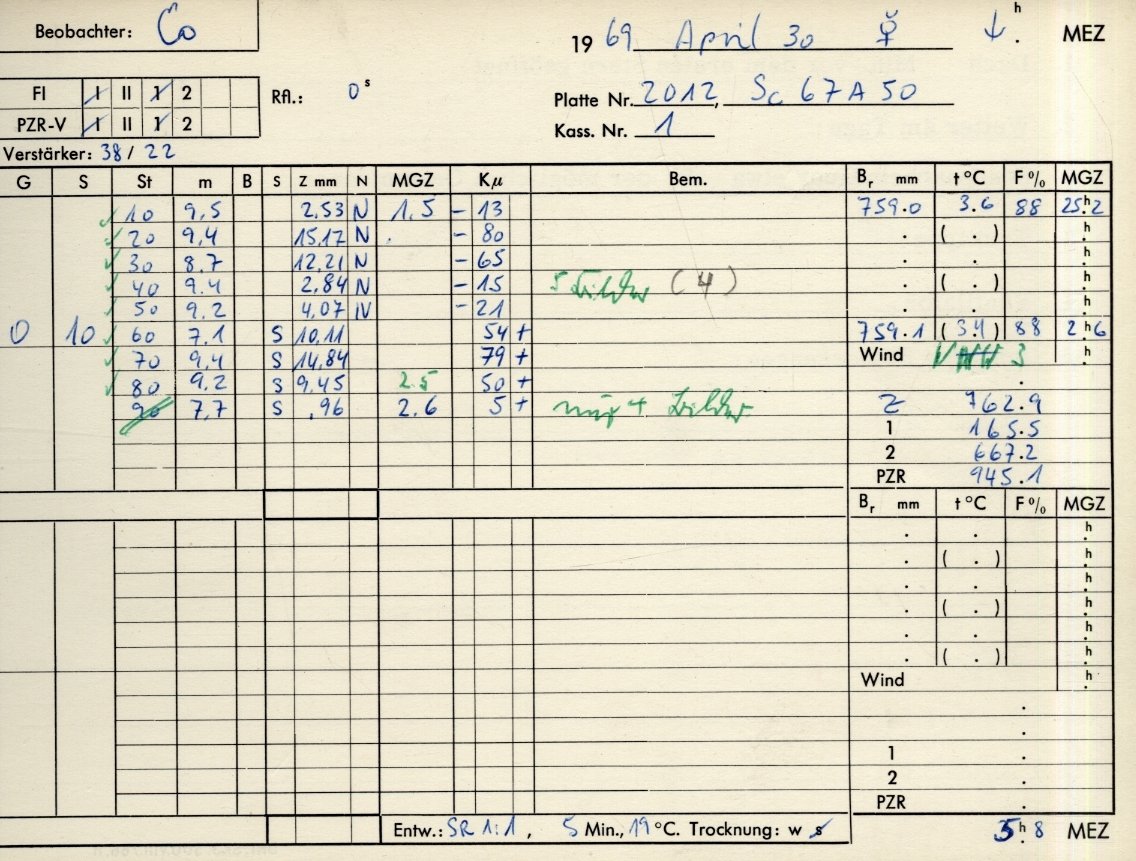 Beobachter: Co
19 69 April 30 ☿ ↓ . h MEZ
FI I II 1 2 Rfl.: 0 s Platte Nr. 2012, Sc 67 A 50
PZR-V I II 1 2 Kass. Nr. 1
Verstärker: 38 / 22
G S St m B S Z mm N MGZ Kμ Bem. Br mm t °C F % MGZ
10 9,5 2,53 N 1.5 - 13 759.0 3.6 88 25h.2
20 9,4 15,17 N . - 80 . ( . ) h.
30 8.7 12,21 N - 65 . . h.
40 9.4 2,84 N - 15 5 Bilder (4) . ( . ) h.
50 9,2 4,07 N - 21 . . h.
0 10 60 7,1 S 10,11 54 + 759.1 (3.4) 88 2h6
70 9,4 S 14,84 79 + Wind 3 h.
80 9,2 S 9,45 2.5 50 + .
90 7,7 S ,96 2.6 5 + nur 4 Bilder 2 762.9
1 165.5
2 667.2
PZR 945.1
Br mm t °C F % MGZ
. . h.
. ( . ) h.
. . h.
. ( . ) h.
. . h.
. ( . ) h.
Wind h.
.
.
1 .
2 .
PZR .
Entw.: SR 1:1, 5 Min., 19 °C. Trocknung: w s 5h.8 MEZ